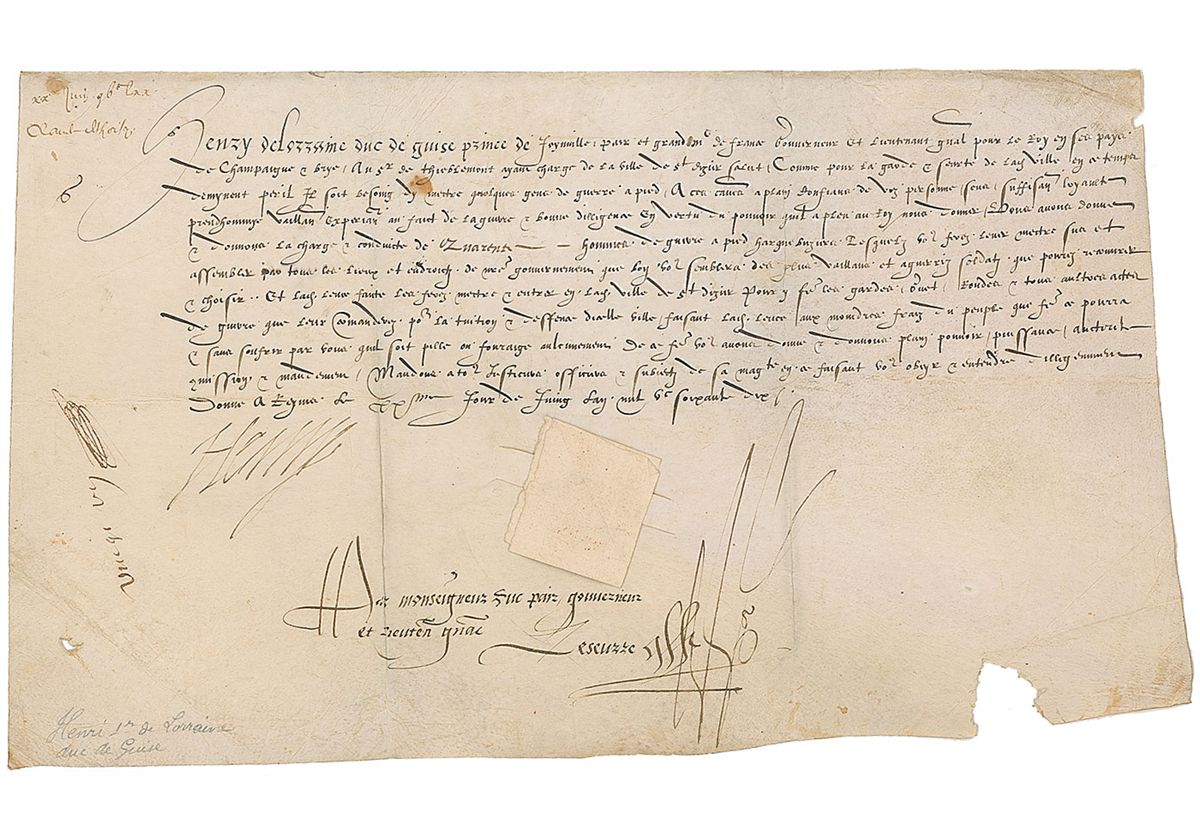 xx Juing
Henry de Lorraine duc de guise prince de Joynuille pair et grand me de france Gouuerneur Et Lieutenant gnal pour Le Roy en ses pays
de Champaigne & brye, Au sr de thieblemont ayant charge de La ville de st dizier salut, Comme pour La garde & seurte de lad ville en ce temps
demynent peril Il soit besoing dy mettre quelques gens de guerre a pied, A ces causes a plain confians de voz personne sens, suffisance loyaulte
preudhommye vaillance experiance au faict de la guerre & bonne dilligence En vertu du pouuoir quil a pleu au Roy nous donner, Vous auons donne
& donnons La charge & conduicte de Quarente hommes de guerre a pied harquebuziers Lesquelz vos ferez leuer mettre sus et
assembler par tous les lieux et endroictz de nre gouuernement que bon vos semblera des plus vaillans et aguerriz soldatz que pourez recouurer
& choisir. Et lad leuee faicte les ferez mettre & entrer en lad ville de st dizier pour y fere les gardes, Guet, Rondes & tous aultres actes
de guerre que leur commanderez por la tuition & deffence dicelle ville, faisant lad leuee aux moindres fraiz du peuple que fere ce pourra
& sans souffrir par vous quil soit pille ou fouraige aulcunement De ce fere vos auons donne & donnons plain pouuoir, puissance, auctorite
comission & mandement, Mandons a tos Justiciers officiers & subiectz de sa magte en ce faisant vos obeyr & entendre dilligemment
Donne A Reyms Le xxme Jour de Juing Lan mil vc soixante dix
Henry
Par monseigneur Duc pair, gouuerneur
et lieuten gnal
Leseurre
Henri 1er de Lorraine
duc de Guise